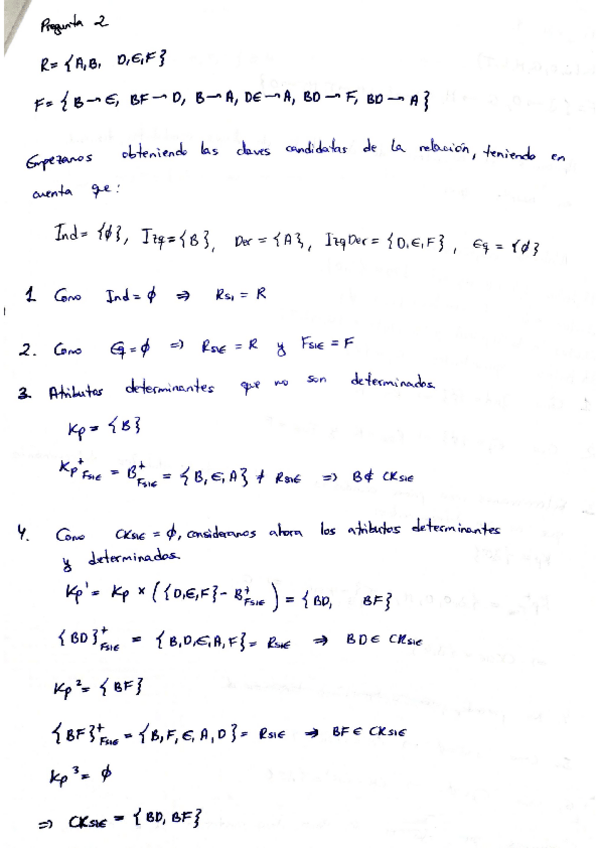 Pregunta 2
R= {A,B, D,E,F}
F= {B→E, BF→D, B→A, DE→A, BD→F, BD→A}
Empezamos obteniendo las claves candidatas de la relación, teniendo en
cuenta que:
Ind= {∅}, Izq={B}, Der={A}, IzqDer={D,E,F}, Eq={∅}
1 Como Ind=∅ ⇒ Rsi = R
2. Como Eq=∅ ⇒ RSIE = R y FSIE = F
3. Atributos determinantes que no son determinados.
Kp= {B}
Kp⁺FSIE = B⁺FSIE = {B,E,A} ≠ RSIE ⇒ B∉ CKSIE
4. Como CKSIE = ∅, consideramos ahora los atributos determinantes
y determinados.
Kp¹= Kp × ({D,E,F}- B⁺FSIE) = {BD, BF}
{BD}⁺FSIE = {B,D,E,A,F}= RSIE ⇒ BD∈ CKSIE
Kp²= {BF}
{BF}⁺FSIE = {B,F,E,A,D}= RSIE ⇒ BF∈ CKSIE
Kp³= ∅
⇒ CKSIE = {BD, BF}